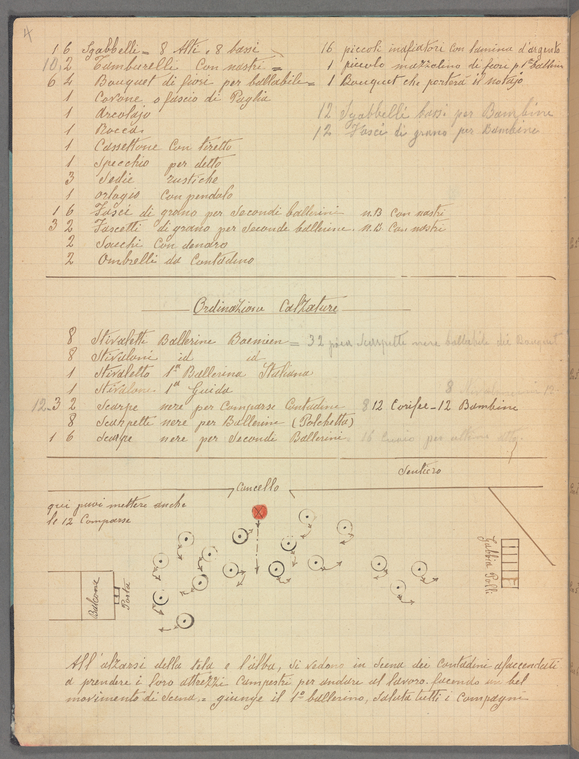 4
16 Sgabelli = 8 Alti, 8 bassi
102 Tamburelli Con nastri =
64 Bouquet di fiori per ballabile =
1 Covone o fascio di Paglia
1 Arcolajo
1 Rocca
1 Cassettone Con tiretto
1 Specchio per detto
3 Sedie rustiche
1 orlogio Con pendolo
16 Fasci di grano per Secondi ballerini N.B Con nastri
32 Fascetti di grano per Seconde ballerine N.B Con nastri
2 Sacchi Con denaro
2 Ombrelli da Contadino
16 piccoli inafiatori Con lamina d'argento
1 piccolo mazzolino di fiori p 1ª ballerina
1 Bouquet che porterà il notajo
12 Sgabelli bassi per Bambine
12 Fasci di grano per Bambine
Ordinazione Calzature
8 Stivaletti Ballerine Boemien = 32 paia Scarpette nere ballabile dei Bouquet
8 Stivaloni id id
1 Stivaletto 1ª Ballerina Italiana
1 Stivalone 1ª Guida
12-32 Scarpe nere per Comparse Contadine 8 12 Corifee - 12 Bambine
8 Scarpette nere per Ballerine (Polchetta)
16 Scarpe nere per Secondi Ballerini 16 per ultimo atto
Sentiero
Cancello
qui puoi mettere anche
le 12 Comparse
Gabbia Polli
Balcone
Porta
All'alzarsi della tela è l'alba, si vedono in Scena dei Contadini affaccendati
a prendere i loro attrezzi Campestri per andare al lavoro facendo un bel
movimento di Scena. = giunge il 1º ballerino, Saluta tutti i Compagni